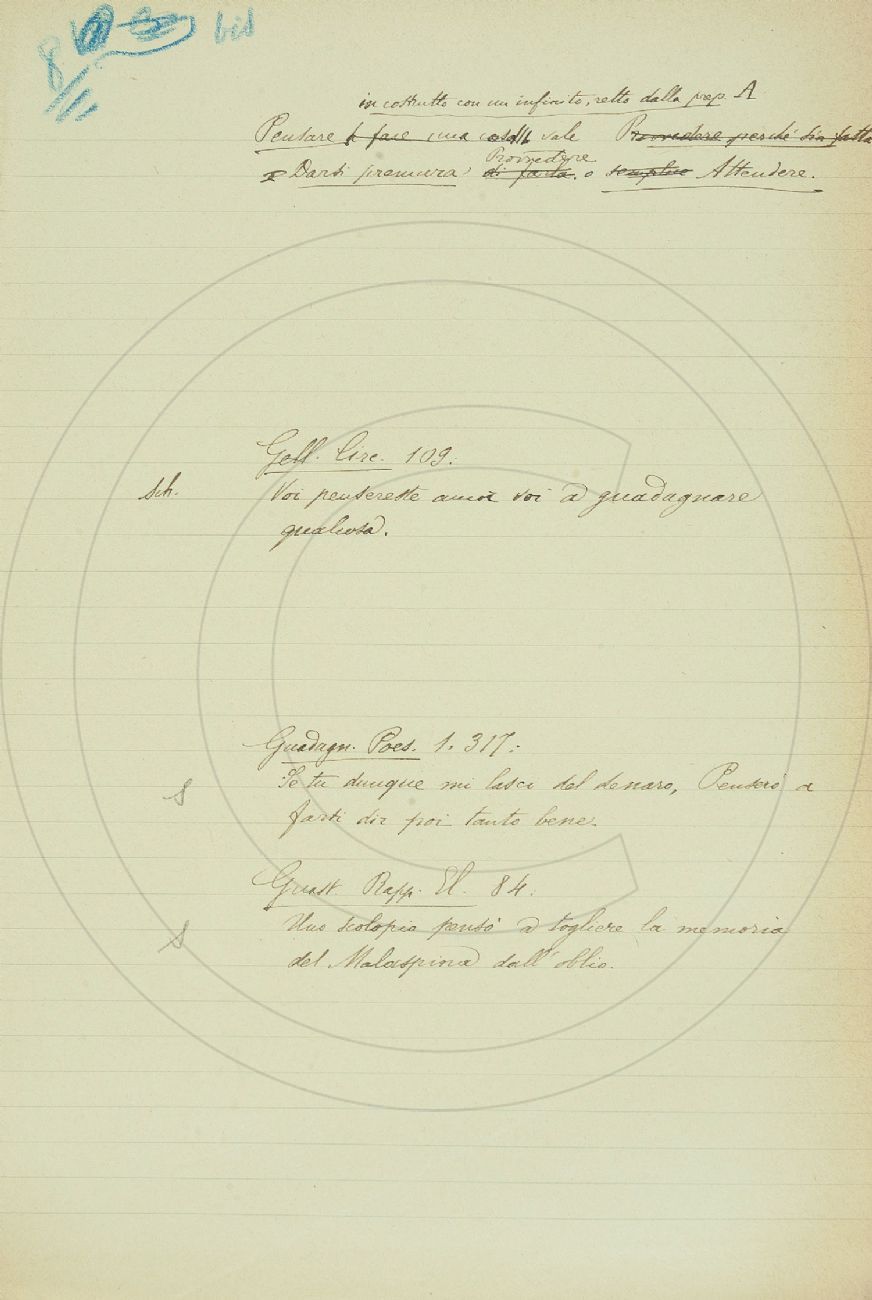 8 bis
in costrutto con un infinito, retto dalla prep. A
Pensare a fare una cosa vale Provvedere perchè sia fatta
Provvedere
o Darsi premura di farla. o semplice Attendere.
Gell. Circ. 109.
sch. Voi pensereste anco voi a guadagnare
qualcosa.
Guadagn. Poes. 1. 317:
S Se tu dunque mi lasci del denaro, Penserò a
farti dir poi tanto bene.
Guast. Rapp. El. 84:
S Uno scolopio pensò a togliere la memoria
del Malaspina dall'oblio.